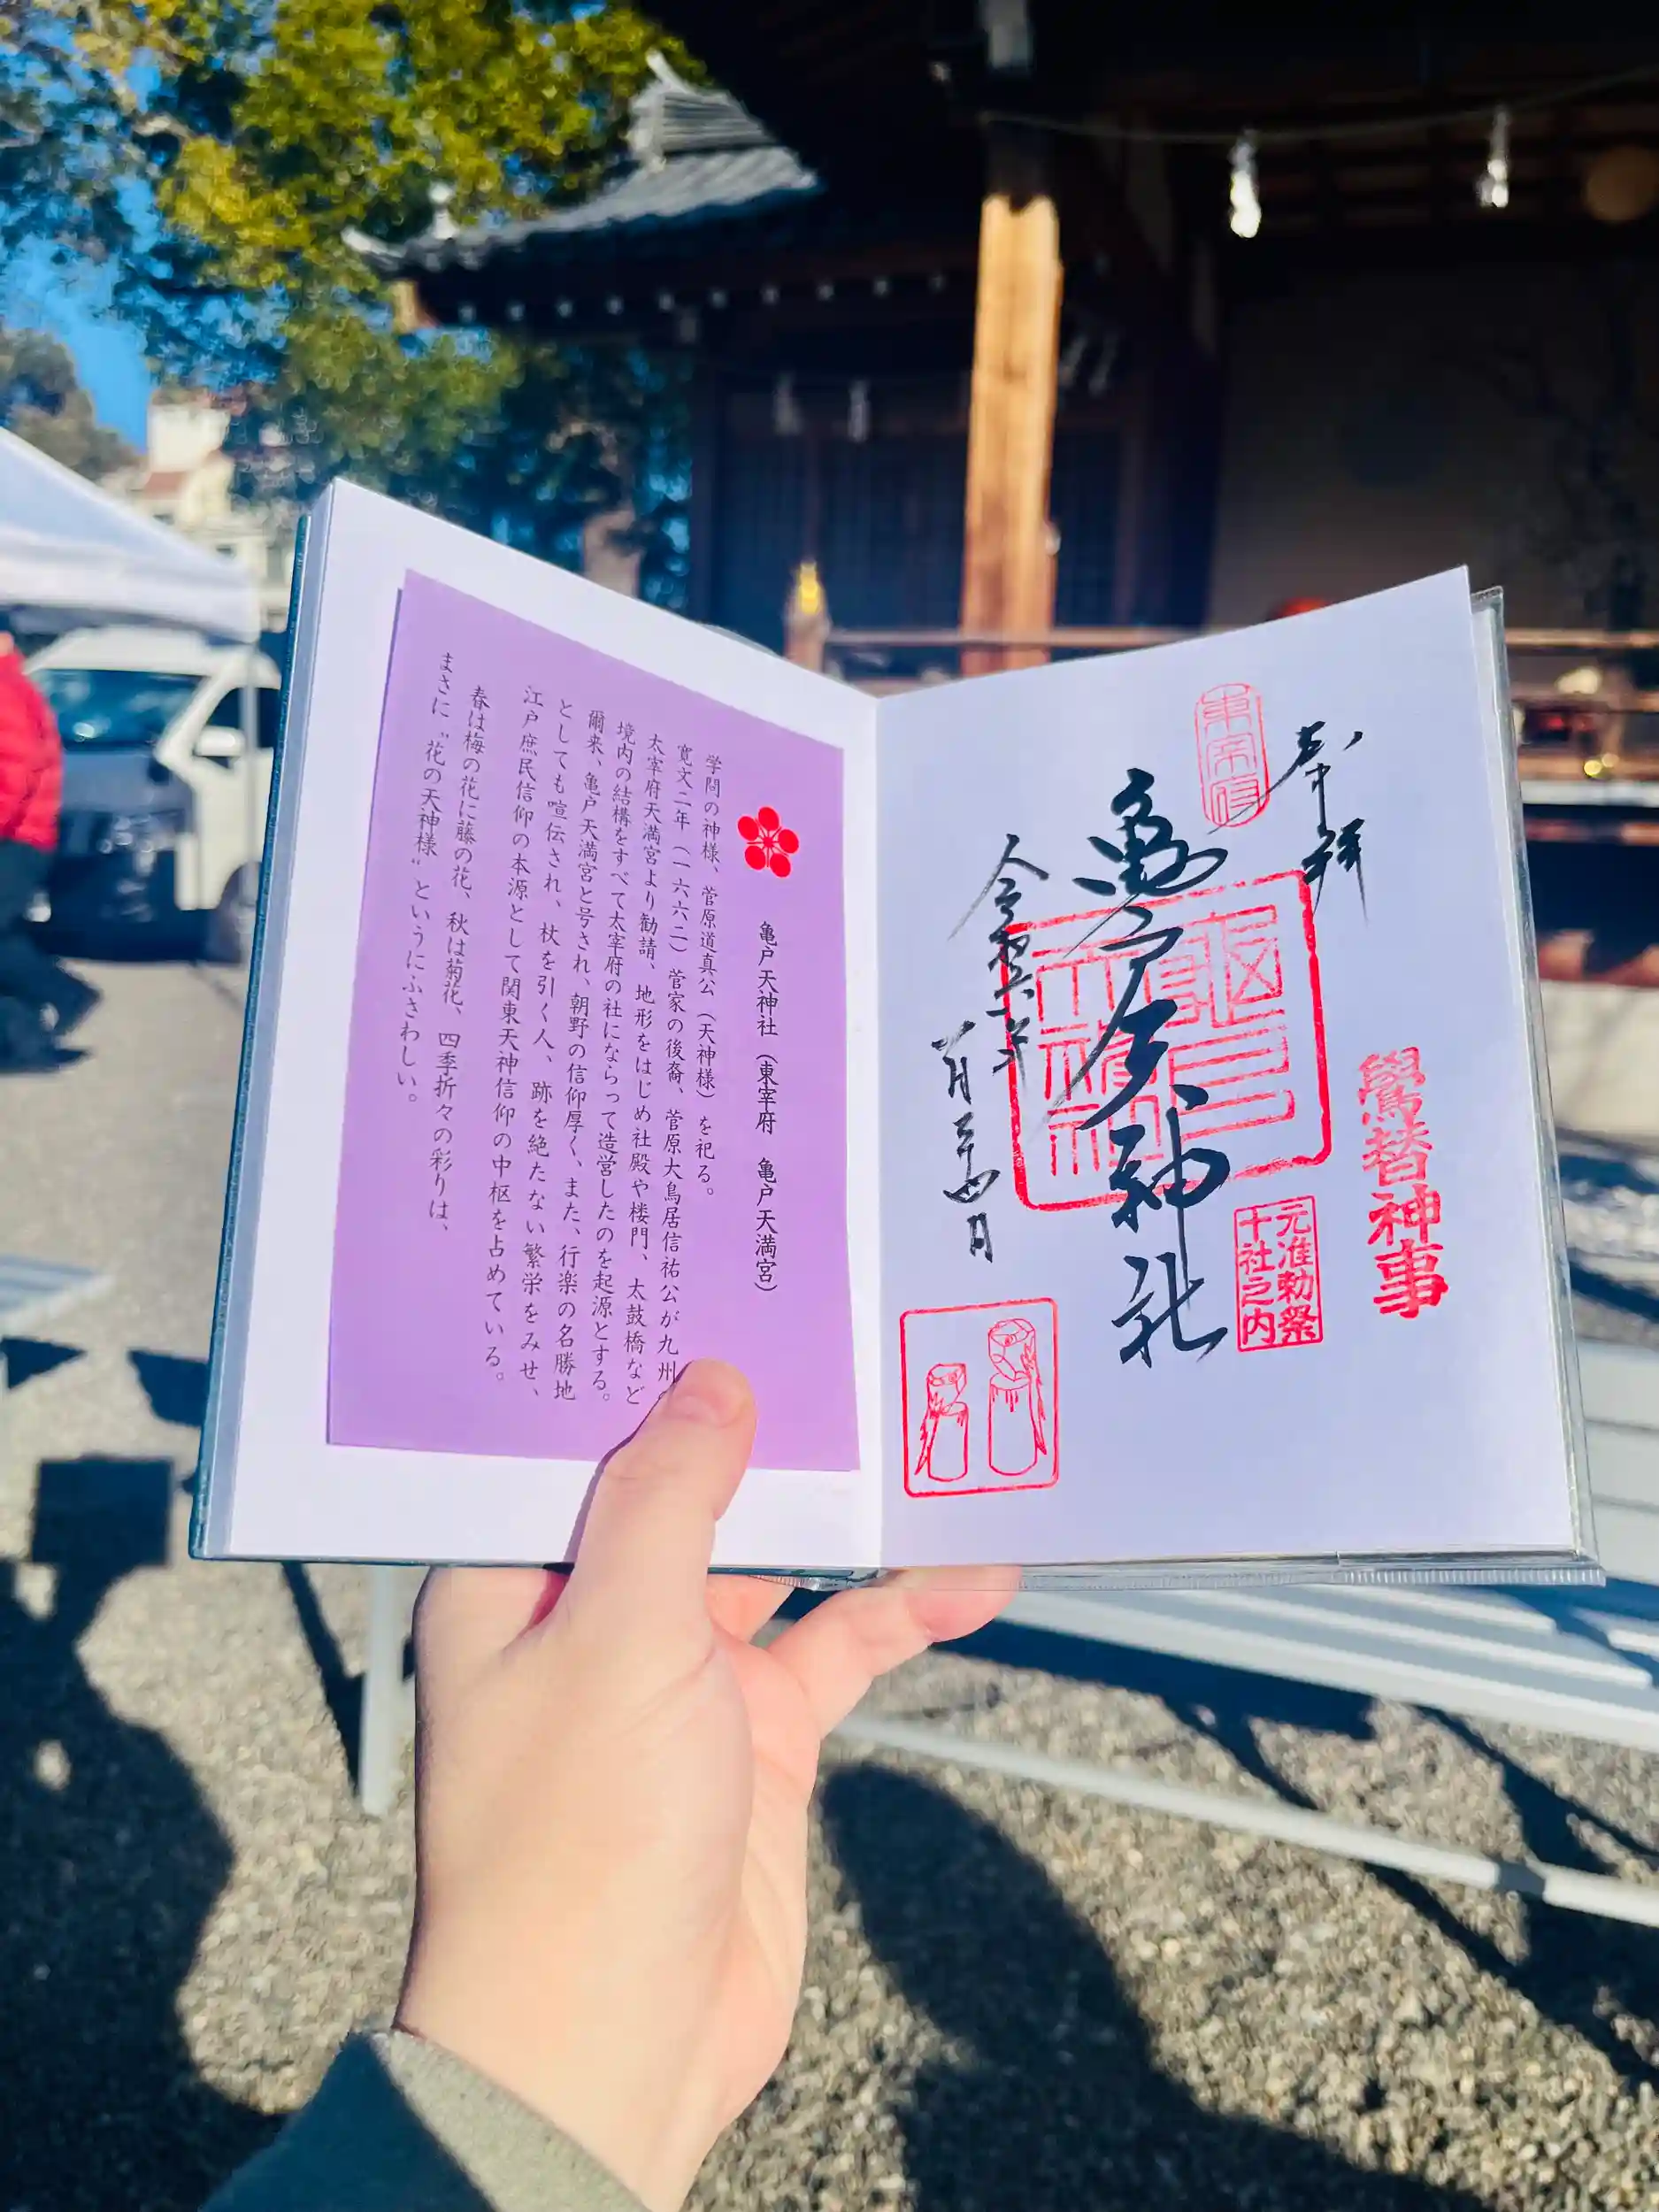 奉拝
東宰府
亀戸天神社
令和六年
一月二十四日
鷽替神事
元准勅祭
十社之内
亀戸天神社（東宰府　亀戸天満宮）
学問の神様、菅原道真公（天神様）を祀る。
寛文二年（一六六二）菅家の後裔、菅原大鳥居信祐公が九州
太宰府天満宮より勧請、地形をはじめ社殿や楼門、太鼓橋など
境内の結構をすべて太宰府の社にならって造営したのを起源とする。
爾来、亀戸天満宮と号され、朝野の信仰厚く、また、行楽の名勝地
としても喧伝され、杖を引く人、跡を絶たない繁栄をみせ、
江戸庶民信仰の本源として関東天神信仰の中枢を占めている。
春は梅の花に藤の花、秋は菊花、四季折々の彩りは、
まさに〝花の天神様〟というにふさわしい。